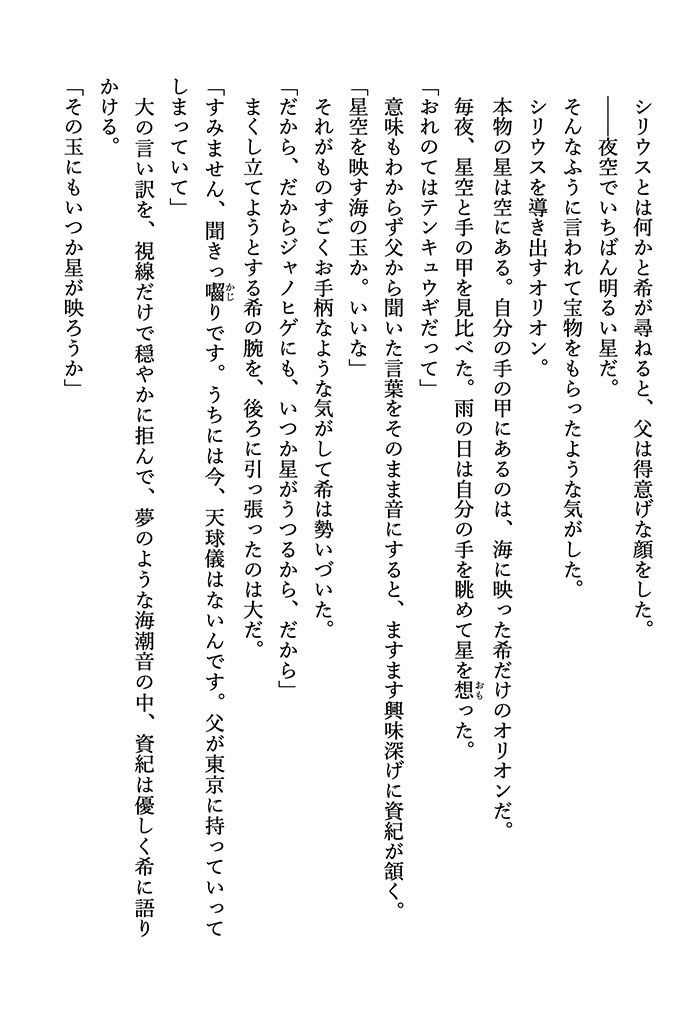 シリウスとは何かと希が尋ねると、父は得意げな顔をした。
――夜空でいちばん明るい星だ。
そんなふうに言われて宝物をもらったような気がした。
シリウスを導き出すオリオン。
本物の星は空にある。自分の手の甲にあるのは、海に映った希だけのオリオンだ。
毎夜、星空と手の甲を見比べた。雨の日は自分の手を眺めて星を想った。
「おれのてはテンキュウギだって」
意味もわからず父から聞いた言葉をそのまま音にすると、ますます興味深げに資紀が頷く。
「星空を映す海の玉か。いいな」
それがものすごくお手柄なような気がして希は勢いづいた。
「だから、だからジャノヒゲにも、いつか星がうつるから、だから」
まくし立てようとする希の腕を、後ろに引っ張ったのは大だ。
「すみません、聞きっ囓りです。うちには今、天球儀はないんです。父が東京に持っていって
しまっていて」
大の言い訳を、視線だけで穏やかに拒んで、夢のような海潮音の中、資紀は優しく希に語り
かける。
「その玉にもいつか星が映ろうか」